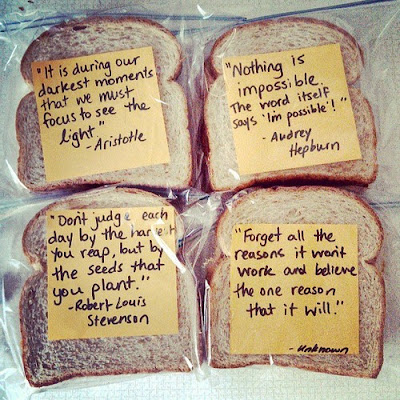 "It is during our
darkest moments
that we must
focus to see the
light."
- Aristotle
"Nothing is
impossible.
The word itself
says 'I'm possible'!"
- Audrey
Hepburn
"Don't judge each
day by the harvest
you reap, but by
the seeds that
you plant."
- Robert Louis
Stevenson
"Forget all the
reasons it won't
work and believe
the one reason
that it will."
- Unknown